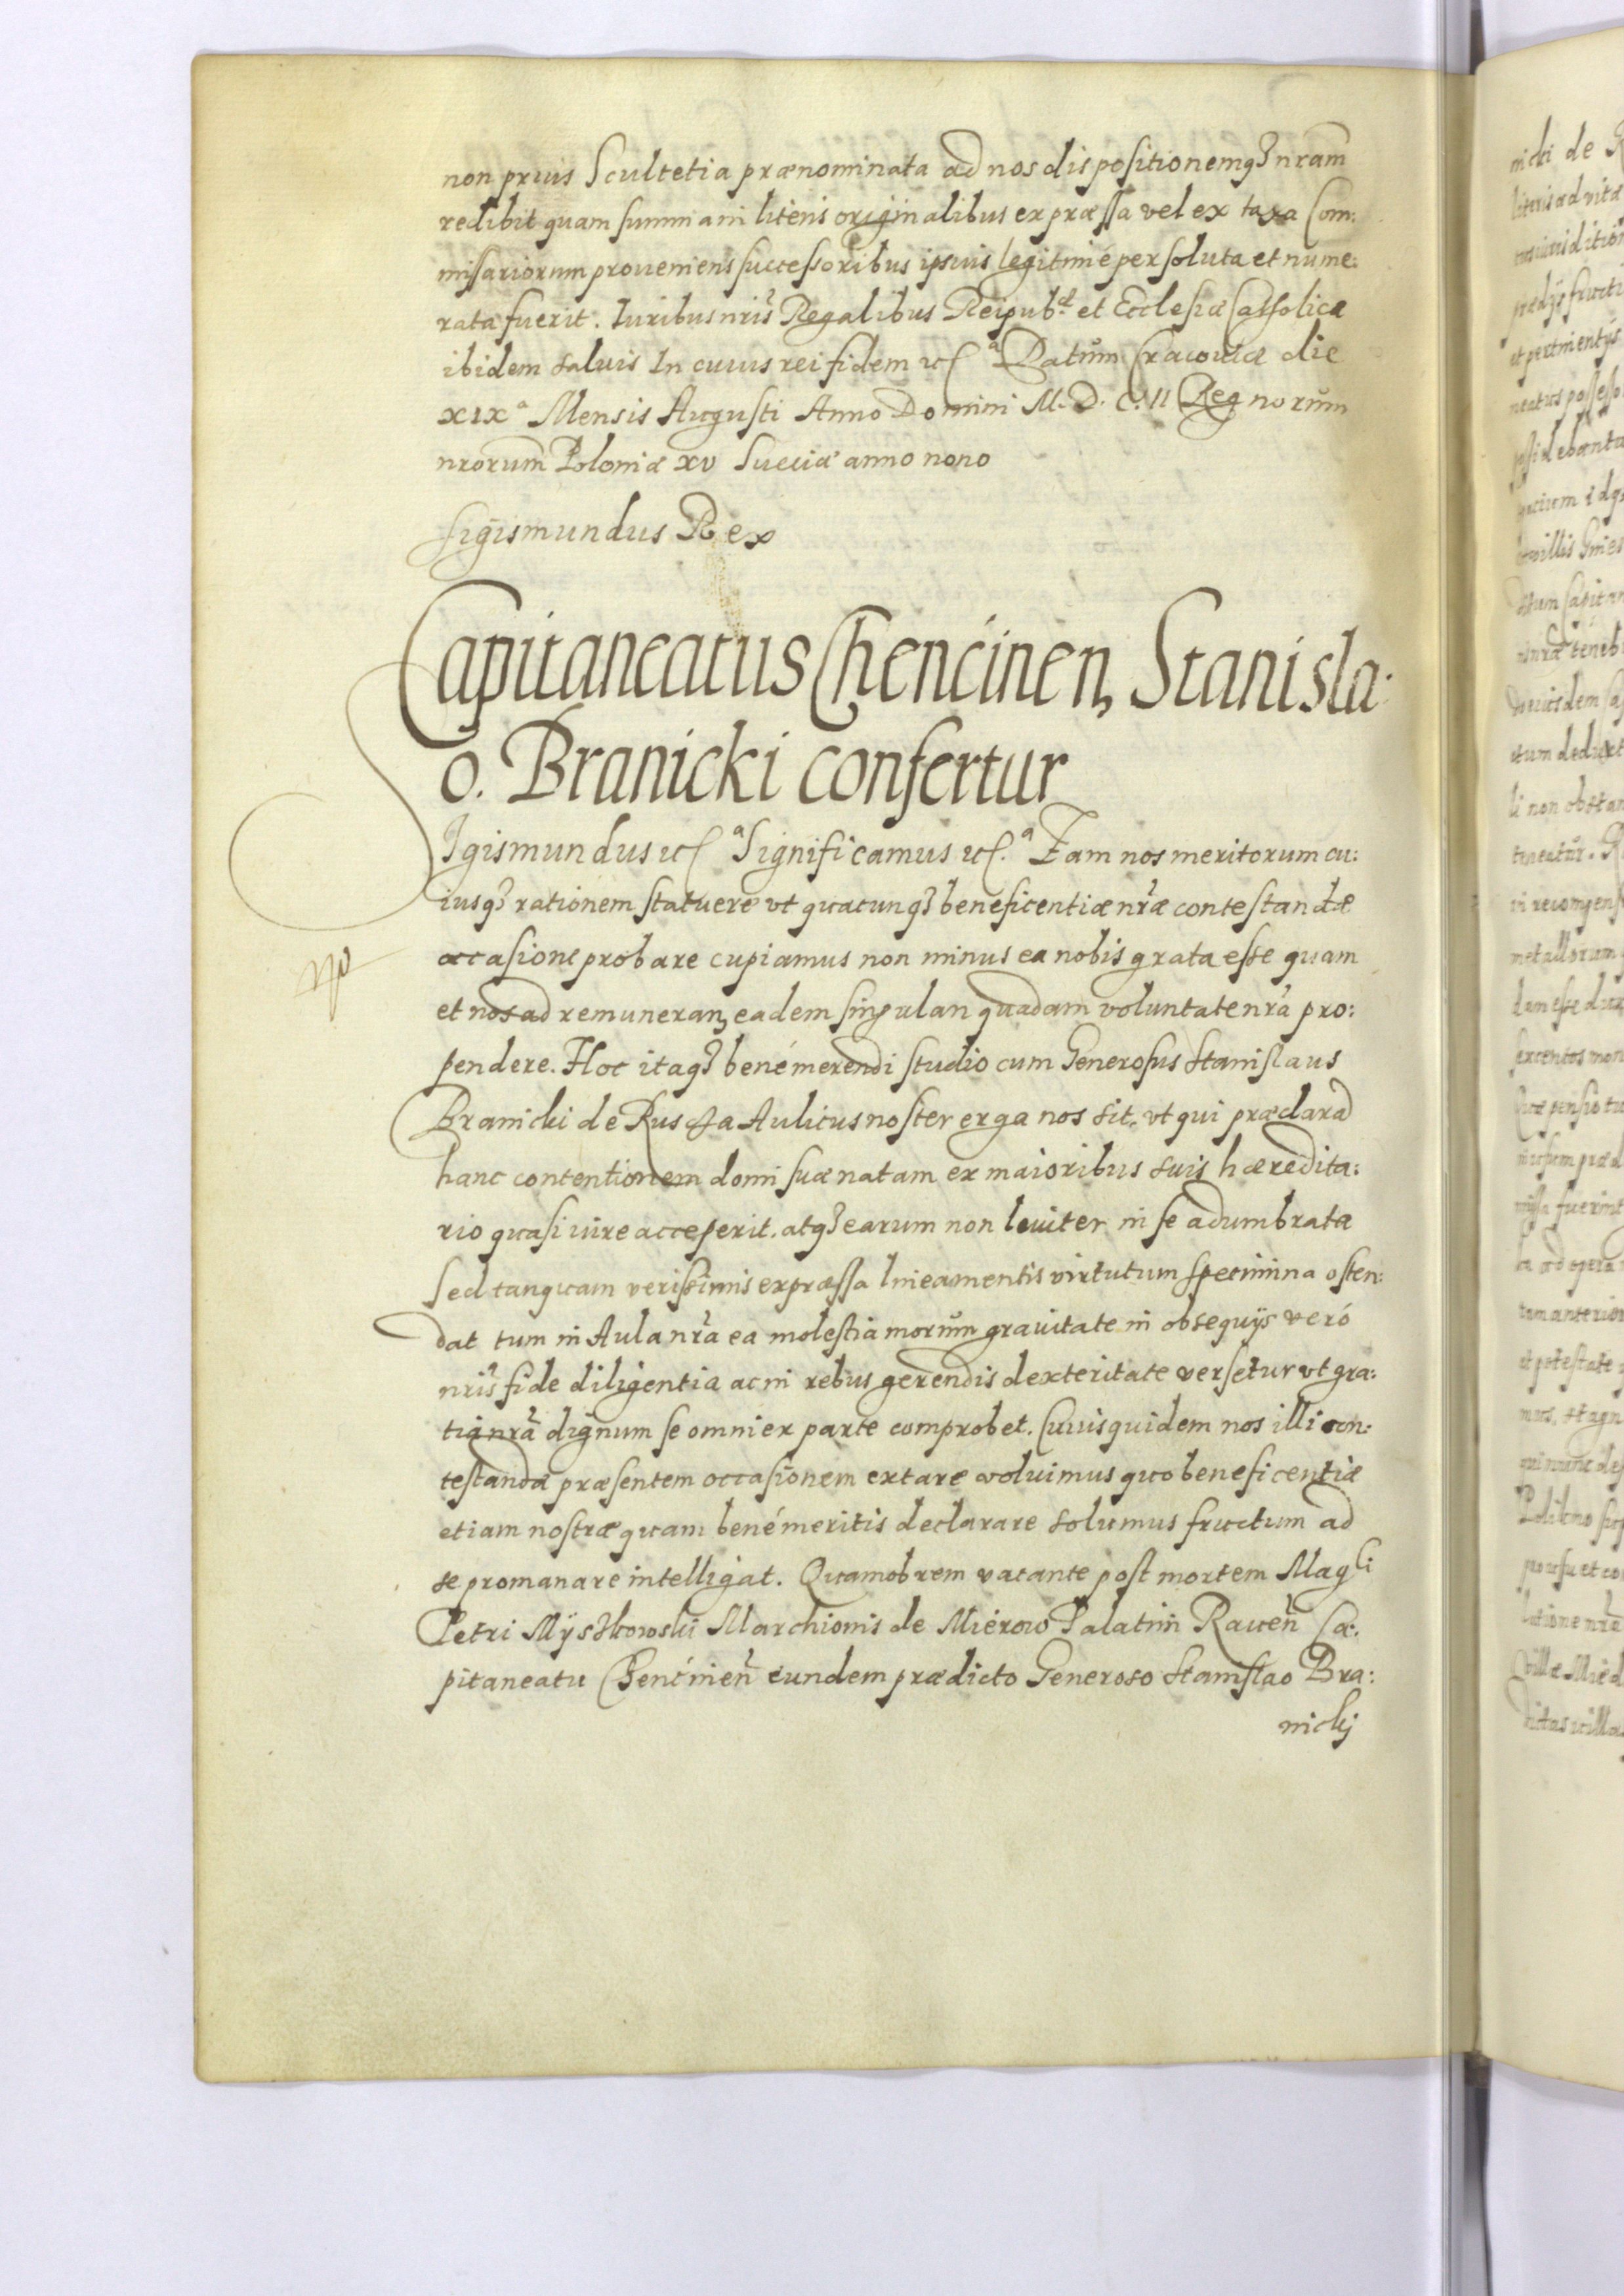 non prius Scultetia prænominata ad nos dispositionemq₃ nram̃
redibit quam summa in literis originalibus expræssa vel ex taxa Com:
missariorum proueniens successoribus ipsius legitimé persoluta et nume:
rata fuerit. Iuribus nris̃ Regalibus Reipub.æ et Ecclesiæ Catholicæ
ibidem saluis In cuius rei fidem etc.ᵃ Datum Cracouiæ die
XIXᵃ Mensis Augusti Anno Domini M. D. C. II Regnorum
nrorum̃ Poloniæ XV Sueciæ anno nono
Sigismundus Rex
Capitaneatus Chencinen, Stanisla:
o. Branicki confertur
Sigismundus etc.ᵃ Significamus etc.ᵃ Eam nos meritorum cu:
iusq₃ rationem statuere vt quacunq₃ beneficentiæ nr̃æ contestandæ
occasione probare cupiamus non minus ea nobis grata esse quam
et nos ad remuneran, eadem singulari quadam voluntate nr̃a pro:
pendere. Hoc itaq₃ bené merendi studio cum Generosus Stanislaus
Branicki de Ruszcza Aulicus noster erga nos sit, vt qui præclarã
hanc contentionem domi suæ natam ex maioribus suis hæredita:
rio quasi iure acceperit. atq₃ earum non leuiter in se adumbrata
Sed tanquam verissimis expræssa lineamentis virtutum specimina osten:
dat tum in Aula nr̃a ea molestia morum grauitate in obsequijs veró
nris̃ fide diligentia ac in rebus gerendis dexteritate versetur vt gra:
tia nr̃a dignum se omni ex parte comprobet. Cuius quidem nos illi con:
testandæ præsentem occasionem extare voluimus quo beneficentiæ
etiam nostræ quam bené meritis declarare solemus fructum ad
se promanare intelligat. Quamobrem vacante post mortem Magci
Petri Myszkowski Marchionis de Mierow Palatini Rauen̄ Ca:
pitaneatu Chencinen̄ eundem prædicto Generoso Stanislao Bra:
nickj